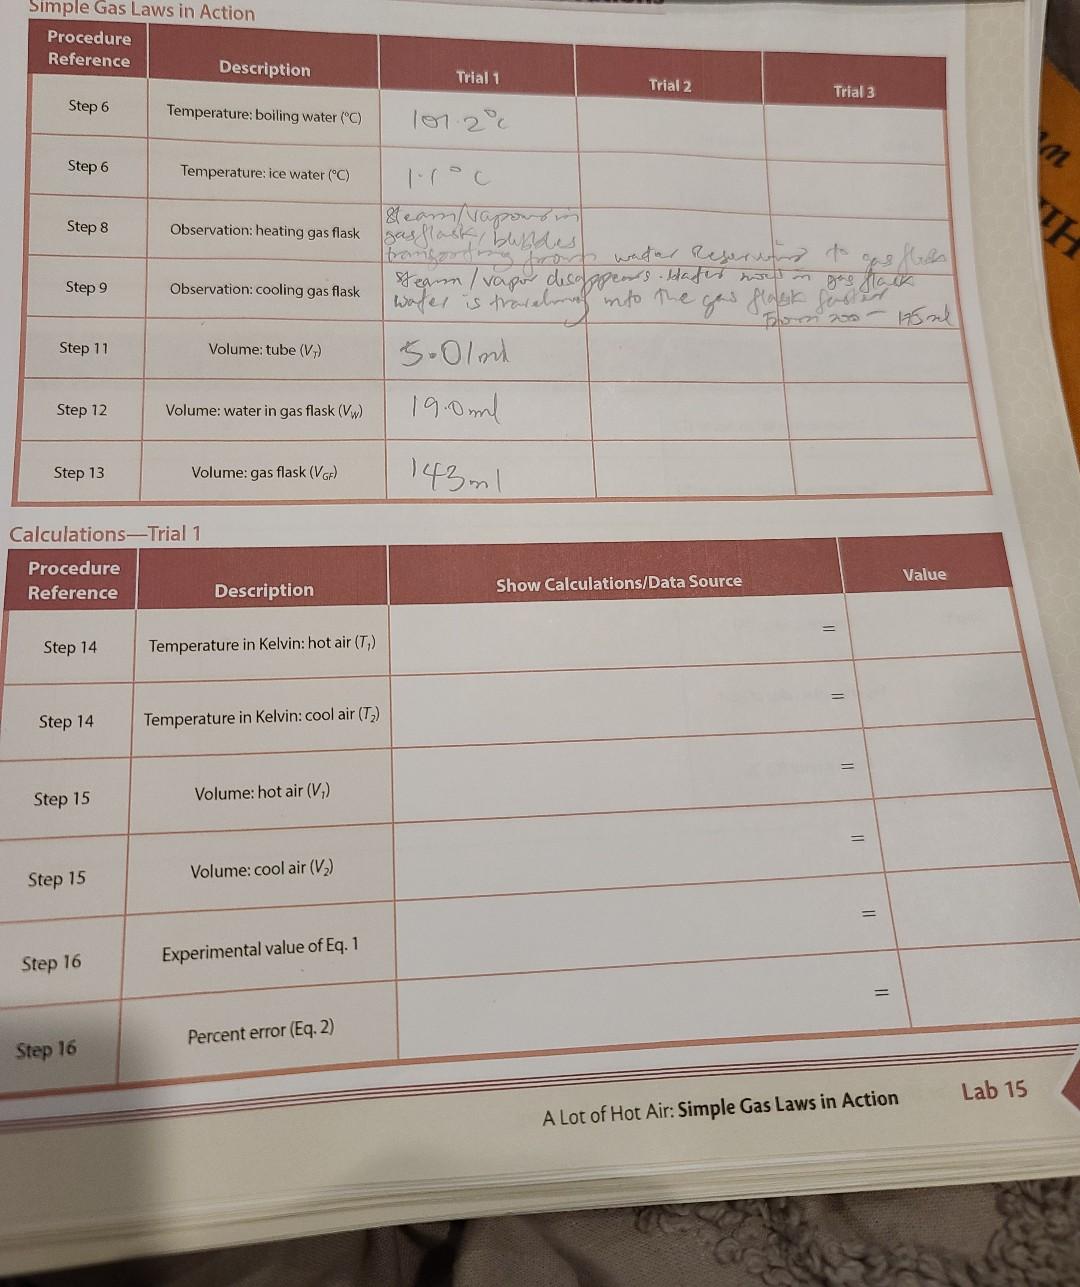 Simple Gas Laws in Action
Procedure Reference Description Trial 1 Trial 2 Trial 3
Step 6 Temperature: boiling water (°C) 101.2°c
Step 6 Temperature: ice water (°C) 1.1°C
Step 8 Observation: heating gas flask steam/vapours in
gas flask, bubbles
transporting from water Reservoird to gas flask
Step 9 Observation: cooling gas flask steam / vapor disappears. Water moves in gas flask
water is traveling into the gas flask faster
From 200 - 175ml
Step 11 Volume: tube (V_T) 5.01ml
Step 12 Volume: water in gas flask (V_W) 19.0ml
Step 13 Volume: gas flask (V_GF) 143ml
Calculations—Trial 1
Procedure Reference Description Show Calculations/Data Source Value
Step 14 Temperature in Kelvin: hot air (T₁) =
Step 14 Temperature in Kelvin: cool air (T₂) =
Step 15 Volume: hot air (V₁) =
Step 15 Volume: cool air (V₂) =
Step 16 Experimental value of Eq. 1 =
Step 16 Percent error (Eq. 2) =
A Lot of Hot Air: Simple Gas Laws in Action Lab 15